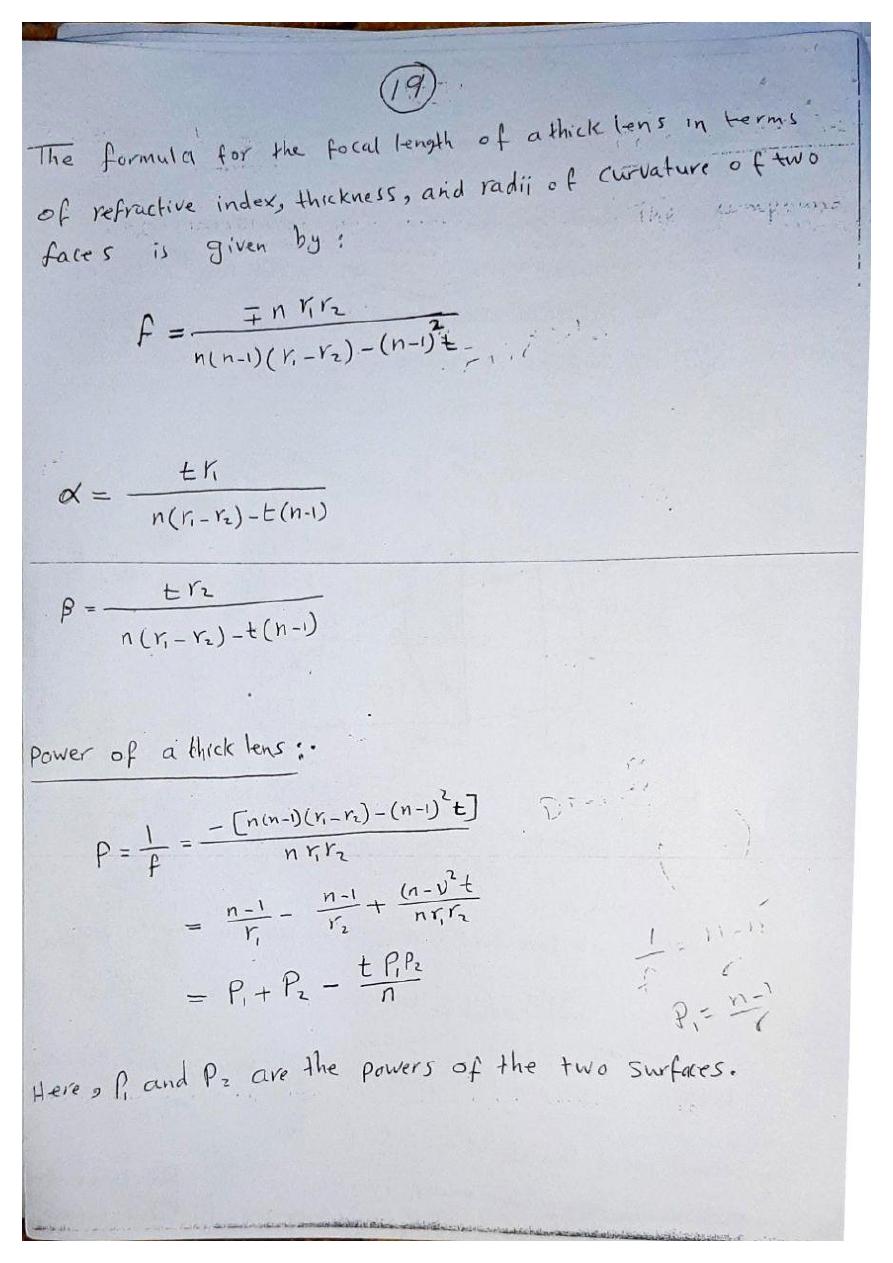 19
The formula for the focal length of a thick lens in terms
of refractive index, thickness, and radii of curvature of two
faces is given by:
f = ∓ n r₁ r₂ / n(n-1)(r₁-r₂)-(n-1)²t
α = t r₁ / n(r₁-r₂)-t(n-1)
β = t r₂ / n(r₁-r₂)-t(n-1)
Power of a thick lens :.
P = 1/f = -[n(n-1)(r₁-r₂)-(n-1)²t] / n r₁ r₂
= n-1/r₁ - n-1/r₂ + (n-1)²t / n r₁ r₂
= P₁ + P₂ - t P₁P₂ / n
P₁ = n-1
Here, P₁ and P₂ are the powers of the two surfaces.